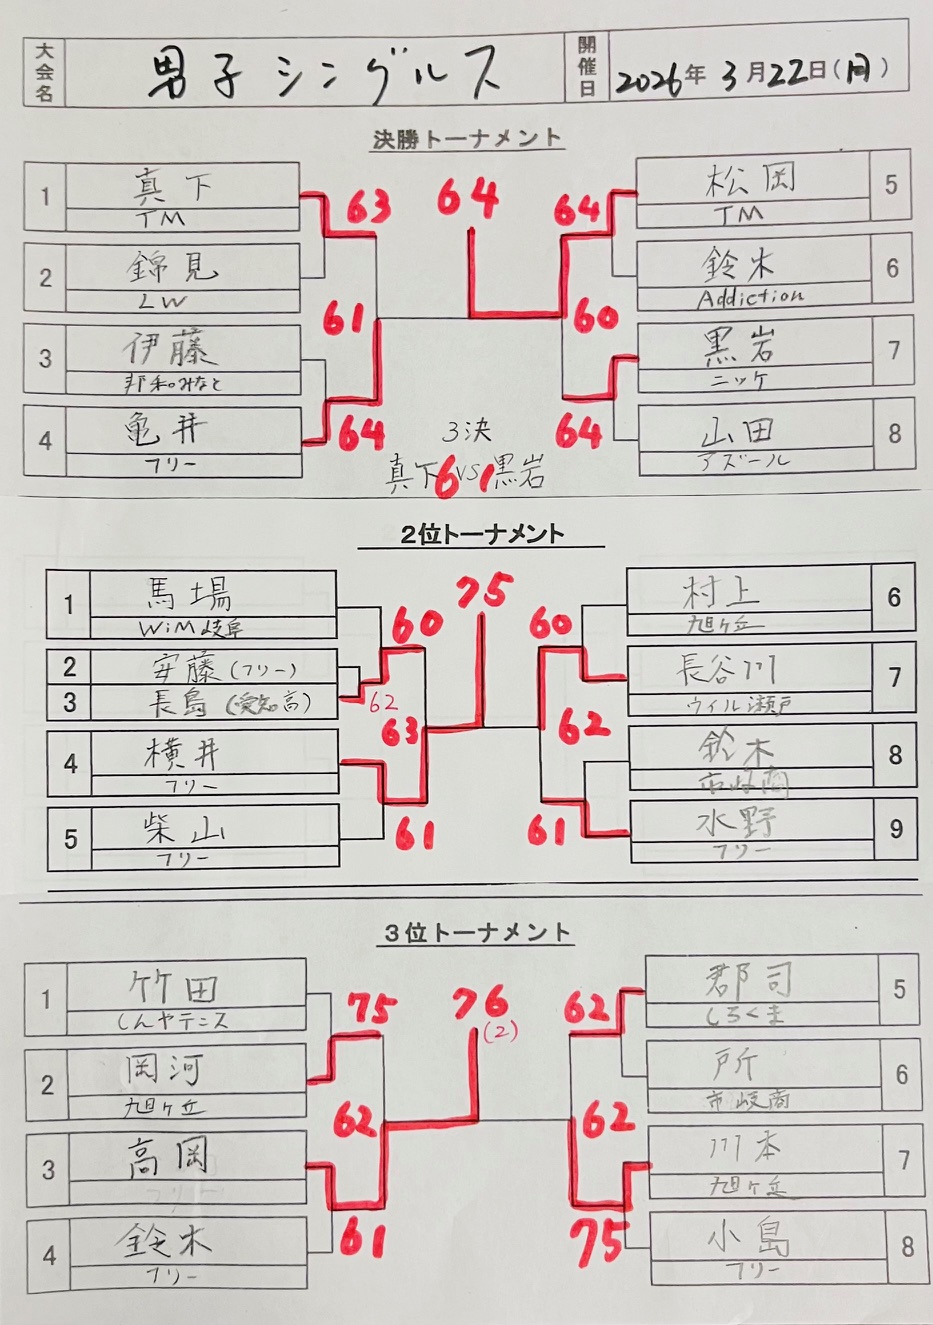 大会名 男子シングルス 開催日 2026年3月22日(月)
決勝トーナメント
1 真下 TM
2 錦見 LW
3 伊藤 邦和みなと
4 亀井 フリー
5 松岡 TM
6 鈴木 Addiction
7 黒岩 ニッケ
8 山田 アズール
63
61
64
64
64
60
64
3決
真下 6 VS 1 黒岩
2位トーナメント
1 馬場 WiM岐阜
2 安藤(フリー)
3 長島(愛知高)
4 横井 フリー
5 柴山 フリー
6 村上 旭ヶ丘
7 長谷川 ウィル瀬戸
8 鈴木 市岐商
9 水野 フリー
60
62
63
61
75
60
62
61
3位トーナメント
1 竹田 しんやテニス
2 岡河 旭ヶ丘
3 高岡 フリー
4 鈴木 フリー
5 郡司 しろくま
6 戸所 市岐商
7 川本 旭ヶ丘
8 小島 フリー
75
62
61
76
(2)
62
62
75